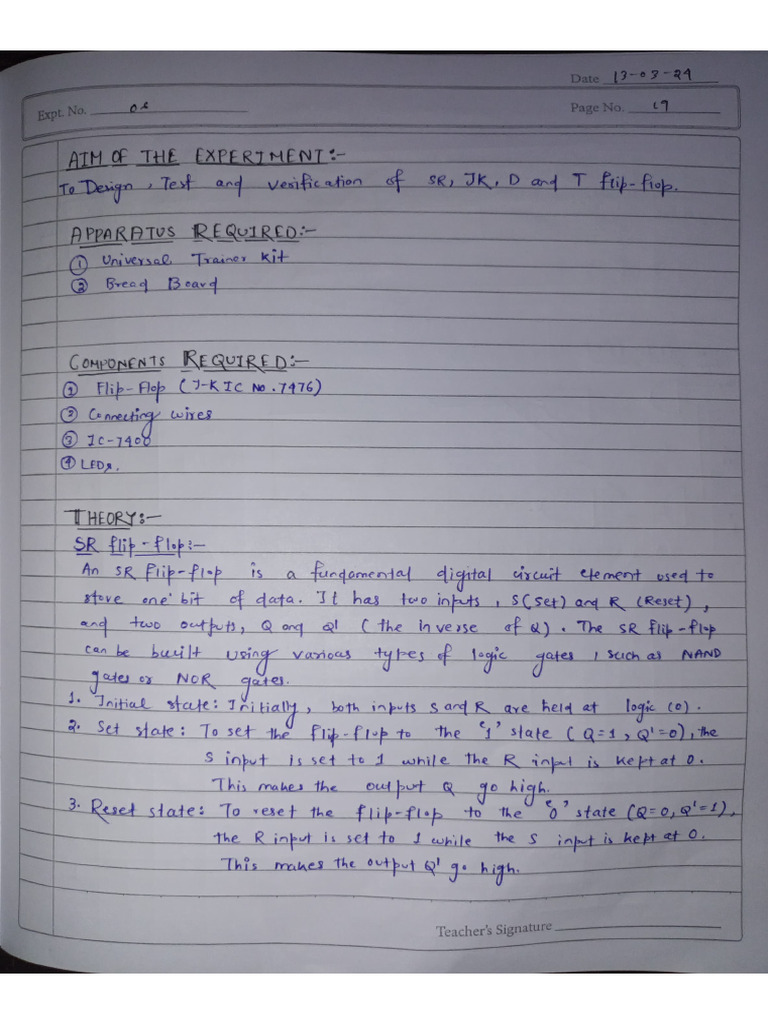 Date 13-03-24
Expt. No. 06
Page No. 19
AIM OF THE EXPERIMENT:-
To Design, Test and verification of SR, JK, D and T flip-flop.
APPARATUS REQUIRED:-
① Universal Trainer Kit
② Bread Board
COMPONENTS REQUIRED:-
① Flip-Flop (J-K IC No. 7476)
② Connecting wires
③ IC-7400
④ LEDs.
THEORY:-
SR flip-flop:-
An SR flip-flop is a fundamental digital circuit element used to
store one bit of data. It has two inputs, S(Set) and R (Reset),
and two outputs, Q and Q' (the Inverse of Q). The SR flip-flop
can be built using various types of logic gates, such as NAND
gates or NOR gates.
1. Initial state: Initially, both inputs S and R are held at logic (0).
2. Set state: To set the flip-flop to the '1' state (Q=1, Q'=0), the
S input is set to 1 while the R input is kept at 0.
This makes the output Q go high.
3. Reset state: To reset the flip-flop to the '0' state (Q=0, Q'=1),
the R input is set to 1 while the S input is kept at 0.
This makes the output Q' go high.
Teacher's Signature